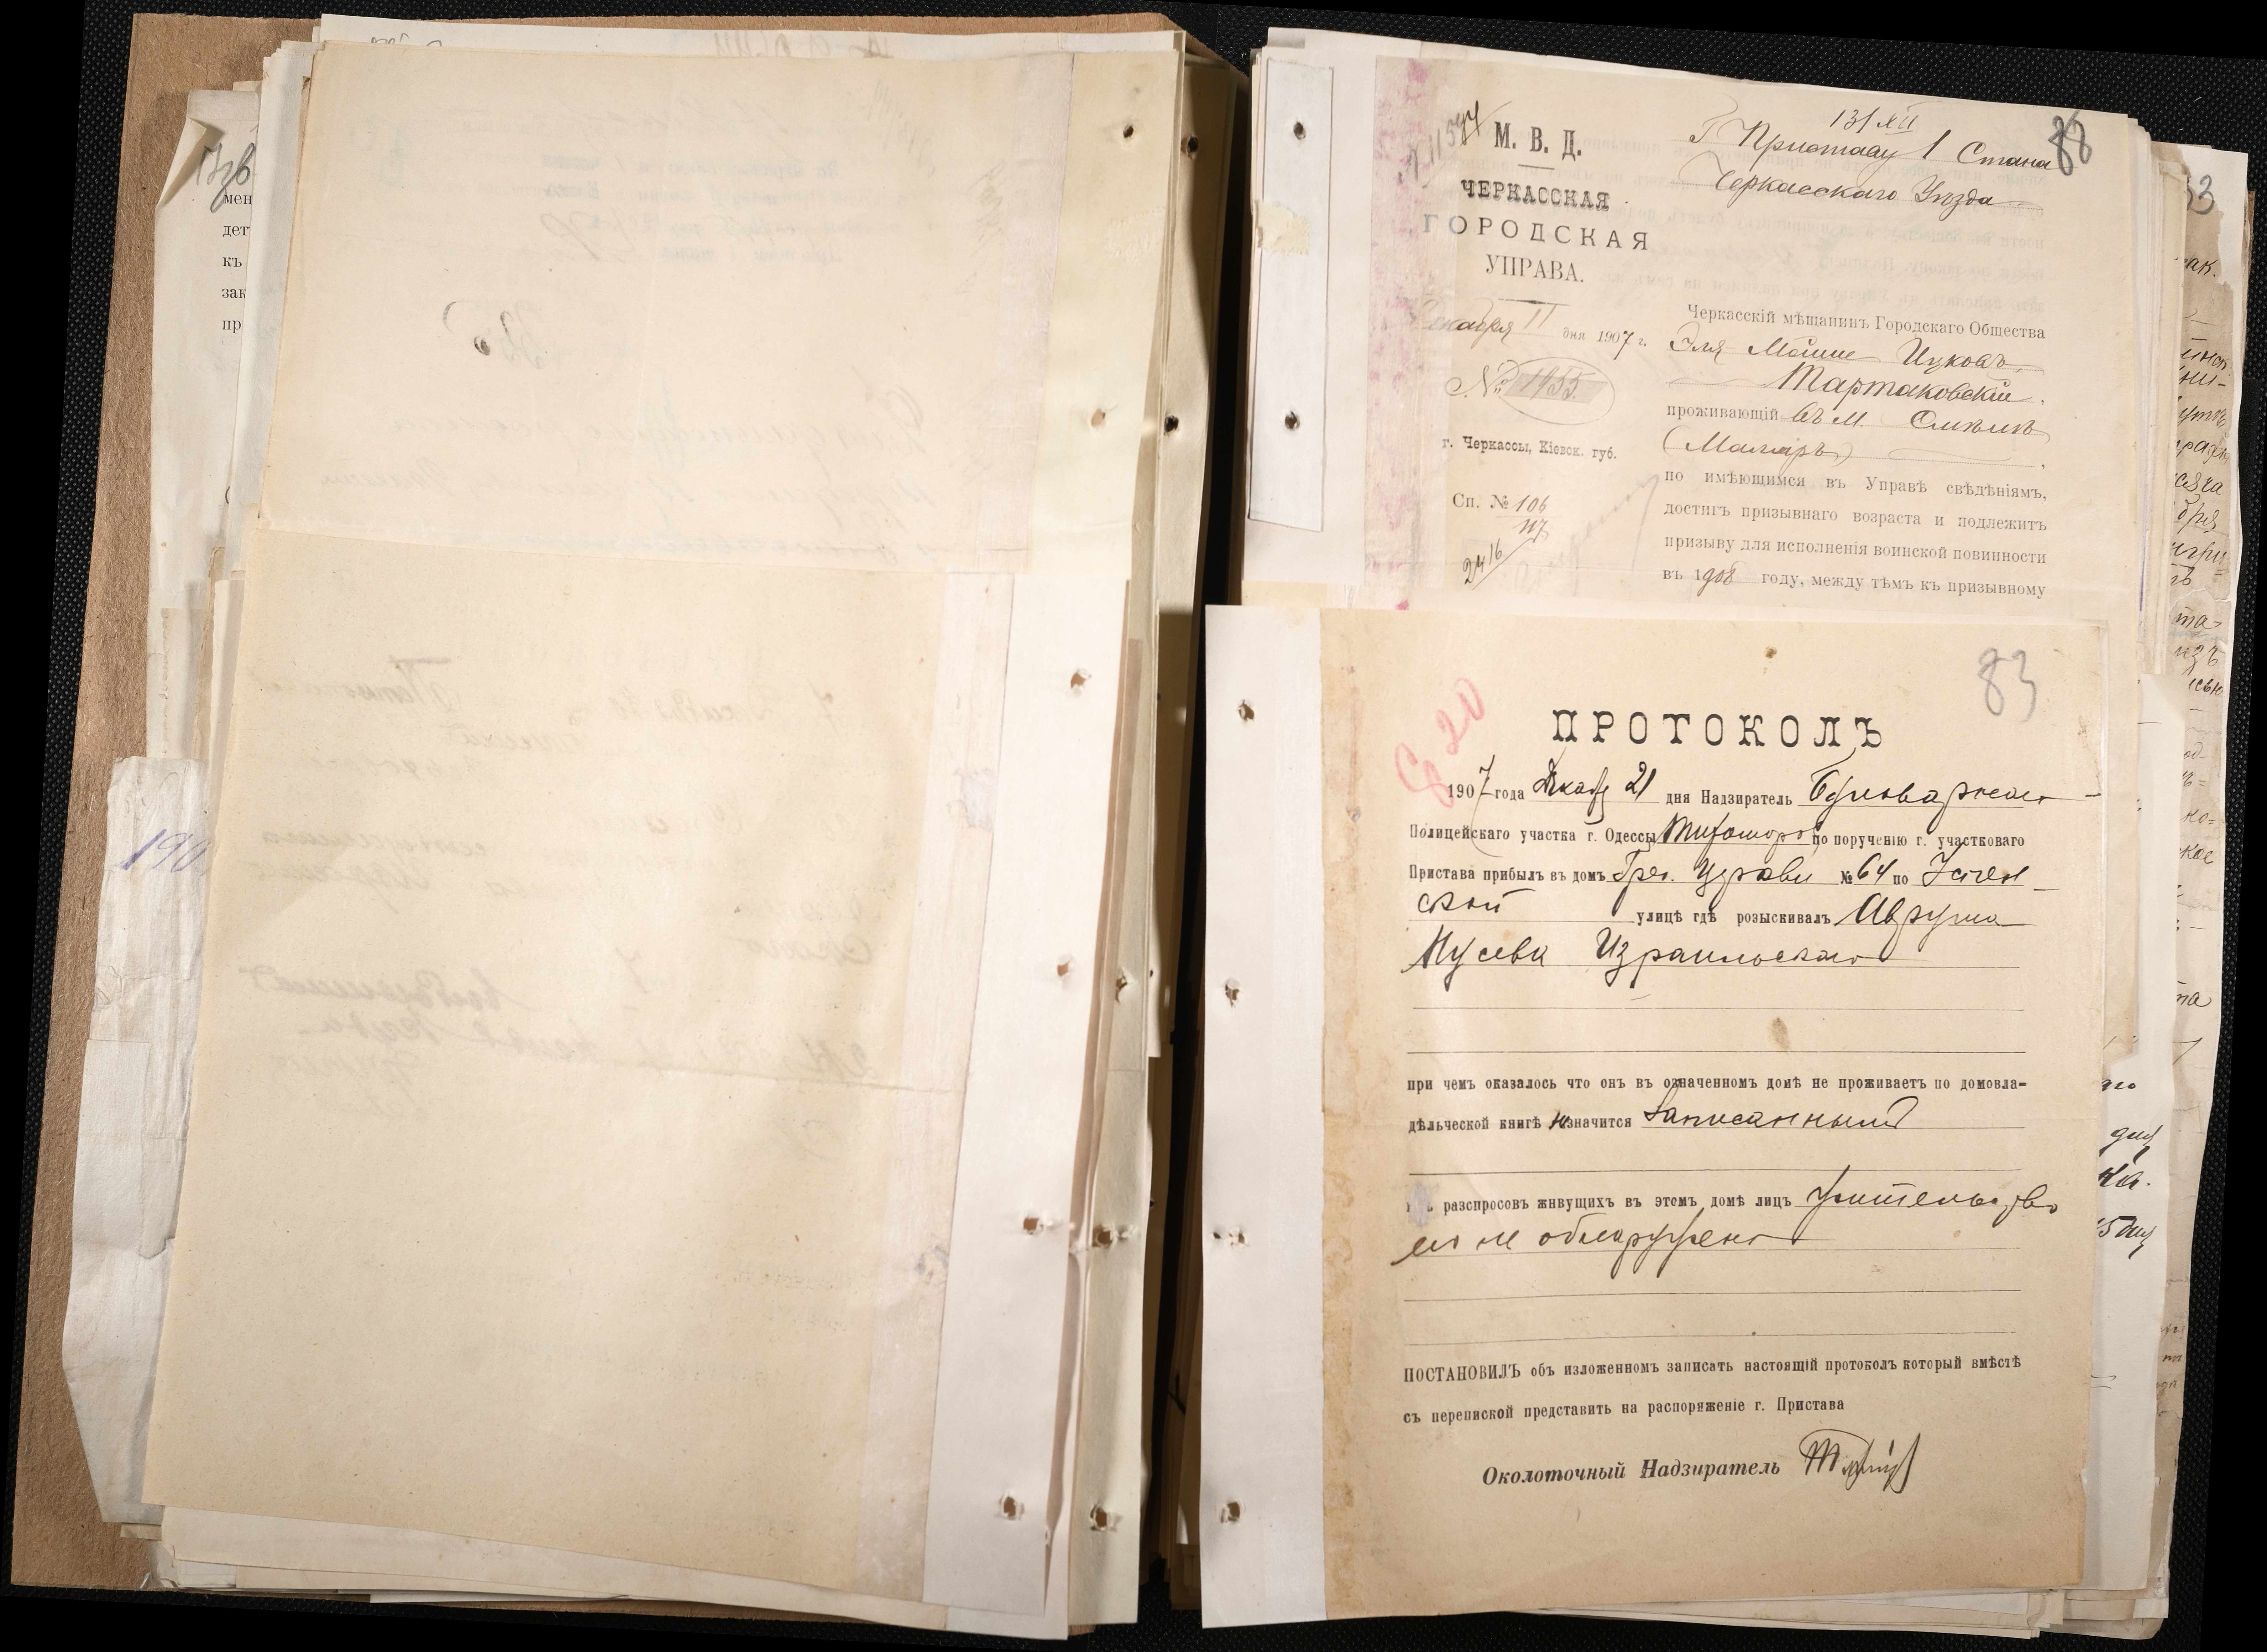 мен
дет
къ
зак
пр
190
М. В. Д.
ЧЕРКАССКАЯ
ГОРОДСКАЯ
УПРАВА.
Декабря 11 дня 1907 г.
№ 1955.
г. Черкассы, Кіевск. губ.
Сп. № 106
117
24 16
13/XII
88
Г Приставу 1 Стана
Черкасскаго Уѣзда
Черкасскій мѣщанинъ Городскаго Общества
Эля Мойше Ицковъ
Тартаковскій,
проживающій въ м. Смѣлѣ
(Маляръ)
по имѣющимся въ Управѣ свѣдѣніямъ,
достигъ призывнаго возраста и подлежитъ
призыву для исполненія воинской повинности
въ 1908 году, между тѣмъ къ призывному
83
20
ПРОТОКОЛЪ
1907 года Декабр 21 дня Надзиратель Бульварнаго
Полицейскаго участка г. Одессы по порученію г. участковаго
Пристава прибылъ въ домъ Греч. Церкви № 64 по Успен-
ской улицѣ гдѣ розыскивалъ Аврума
Нусева Израильскаго
при чемъ оказалось что онъ въ означенномъ домѣ не проживаетъ по домовла-
дѣльческой книгѣ не значится записаннымъ
разспросовъ живущихъ въ этомъ домѣ лицъ жительство
его не обнаружено
ПОСТАНОВИЛЪ объ изложенномъ записать настоящій протоколъ который вмѣстѣ
съ перепиской представить на распоряженіе г. Пристава
Околоточный Надзиратель